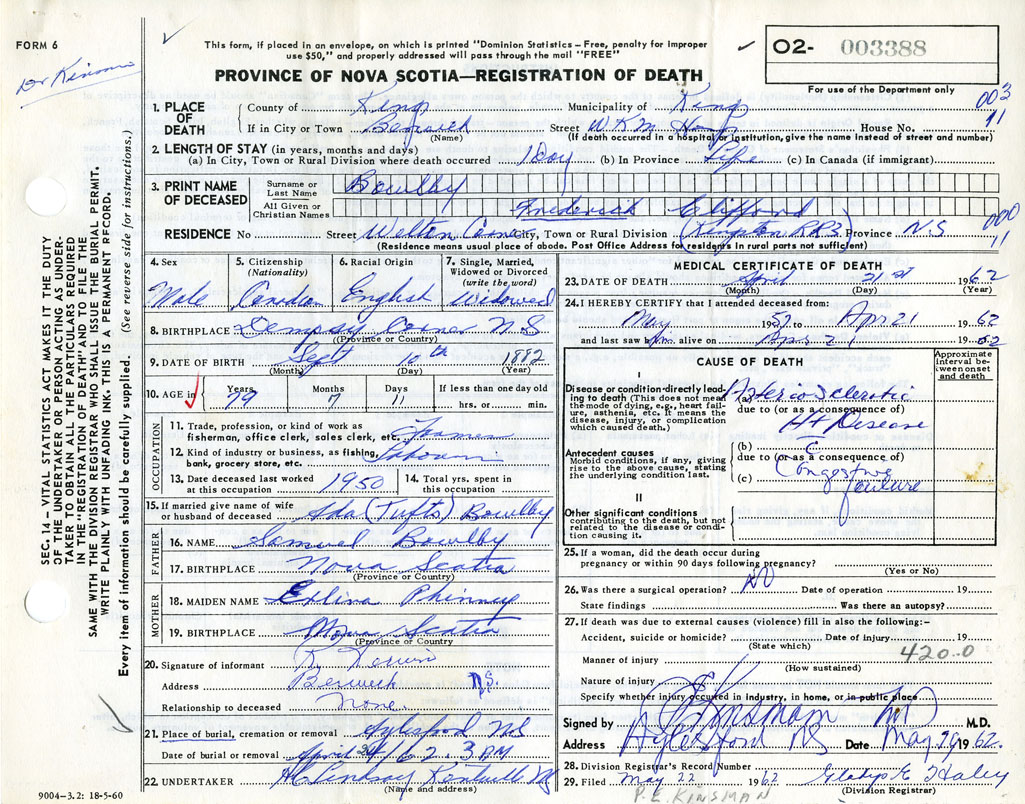 FORM 6
Dr Kinsman
This form, if placed in an envelope, on which is printed "Dominion Statistics – Free, penalty for improper
use $50," and properly addressed will pass through the mail "FREE"
O2- 003388
For use of the Department only
PROVINCE OF NOVA SCOTIA—REGISTRATION OF DEATH
003
11
1. PLACE OF DEATH
County of Kings Municipality of Kings
If in City or Town Berwick (Name) Street W K M Hosp House No.
(If death occurred in a hospital or institution, give the name instead of street and number)
2. LENGTH OF STAY (in years, months and days)
(a) In City, Town or Rural Division where death occurred 1 Day (b) In Province Life (c) In Canada (if immigrant)
3. PRINT NAME OF DECEASED
Surname or Last Name Bowlby
All Given or Christian Names Frederick Clifford
000
11
RESIDENCE No Street Welton Corner City, Town or Rural Division (Kingston RR3) Province N.S
(Residence means usual place of abode. Post Office Address for residents in rural parts not sufficient)
4. Sex Male
5. Citizenship (Nationality) Canadian
6. Racial Origin English
7. Single, Married, Widowed or Divorced (write the word) Widowed
8. BIRTHPLACE Dempsey Corner N S
(Province or Country)
9. DATE OF BIRTH Sept 10th 1882
(Month) (Day) (Year)
10. AGE in Years 79 Months 7 Days 11 If less than one day old hrs. or min.
OCCUPATION
11. Trade, profession, or kind of work as fisherman, office clerk, sales clerk, etc. Farmer
12. Kind of industry or business, as fishing, bank, grocery store, etc.
13. Date deceased last worked at this occupation 1950
14. Total yrs. spent in this occupation
15. If married give name of wife or husband of deceased Ada (Tufts) Bowlby
FATHER
16. NAME Samuel Bowlby
17. BIRTHPLACE Nova Scotia
(Province or Country)
MOTHER
18. MAIDEN NAME Phinney
19. BIRTHPLACE Nova Scotia
(Province or Country
20. Signature of informant
Address Berwick N.S.
Relationship to deceased none
21. Place of burial, cremation or removal Aylesford NS
Date of burial or removal April 24/62. 3 PM
22. UNDERTAKER H C Lindsay Kentville NS
(Name and address)
9004-3.2: 18-5-60
MEDICAL CERTIFICATE OF DEATH
23. DATE OF DEATH April 21st 1962
(Month) (Day) (Year)
24. I HEREBY CERTIFY that I attended deceased from:
May 1957 to Apr 21 1962
and last saw him alive on Apr 21 1962
CAUSE OF DEATH
Approximate interval between onset and death
I
Disease or condition directly leading to death (This does not mean the mode of dying, e.g., heart failure, asthenia, etc. It means the disease, injury, or complication which caused death.)
(a) Arterio Sclerotic
due to (or as a consequence of)
Ht Disease
Antecedent causes
Morbid conditions, if any, giving rise to the above cause, stating the underlying condition last.
(b)
due to (or as a consequence of)
(c) Congestive failure
II
Other significant conditions
contributing to the death, but not related to the disease or condition causing it.
25. If a woman, did the death occur during pregnancy or within 90 days following pregnancy?
(Yes or No)
26. Was there a surgical operation? NO Date of operation 19
State findings Was there an autopsy?
27. If death was due to external causes (violence) fill in also the following:-
Accident, suicide or homicide? Date of injury 19
(State which)
420-0
Manner of injury
(How sustained)
Nature of injury
Specify whether injury occured in industry, in home, or in public place
Signed by P E Kinsman MD M.D.
Address Aylesford NS Date May 29 1962.
28. Division Registrar's Record Number
29. Filed May 22 1962 Gladys E Haley
(Division Registrar)
P.E. KINSMAN
SEC. 14 – VITAL STATISTICS ACT MAKES IT THE DUTY
OF THE UNDERTAKER OR PERSON ACTING AS UNDER-
TAKER TO OBTAIN ALL THE PARTICULARS REQUIRED
IN THE "REGISTRATION OF DEATH" AND TO FILE THE
SAME WITH THE DIVISION REGISTRAR WHO SHALL ISSUE THE BURIAL PERMIT.
WRITE PLAINLY WITH UNFADING INK. THIS IS A PERMANENT RECORD.
Every item of information should be carefully supplied. (See reverse side for instructions.)